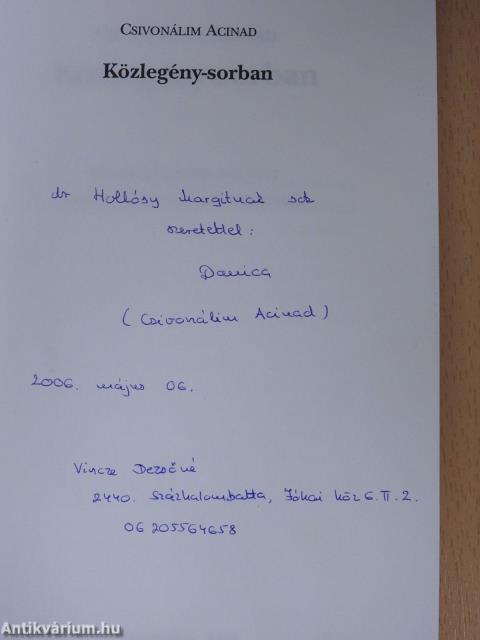 Csivonálim Acinad
Közlegény-sorban
dr Hollósy Margitnak sok
szeretettel:
Danica
(Csivonálim Acinad)
2006. május 06.
Vincze Dezsőné
2440. Százhalombatta, Jókai köz 6. II. 2.
06 205564658
Antikvárium.hu